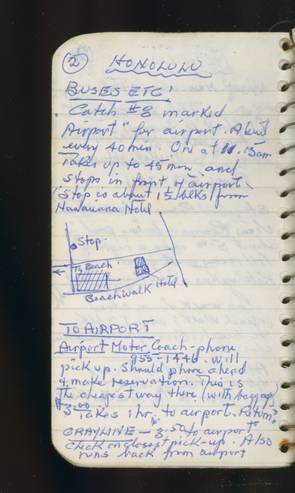 ② HONOLULU
BUSES ETC!
Catch #8 marked
Airport" for airport. About
every 40 min. On at 11.15am
Takes up to 45 min, and
stops in front of airport.
Stop is about 1½ blks from
Hawaiiana Hotel
Stop.
To Beach
Beachwalk Hotel
TO AIRPORT
Airport Motor Coach - phone
955-1446. Will
pick up. Should phone ahead
& make reservation. This is
the cheapest way there (with baggage)
Takes 1 hr. to airport. Return?
GRAYLINE - to airport
Check on closest pick-up. Also
runs back from airport